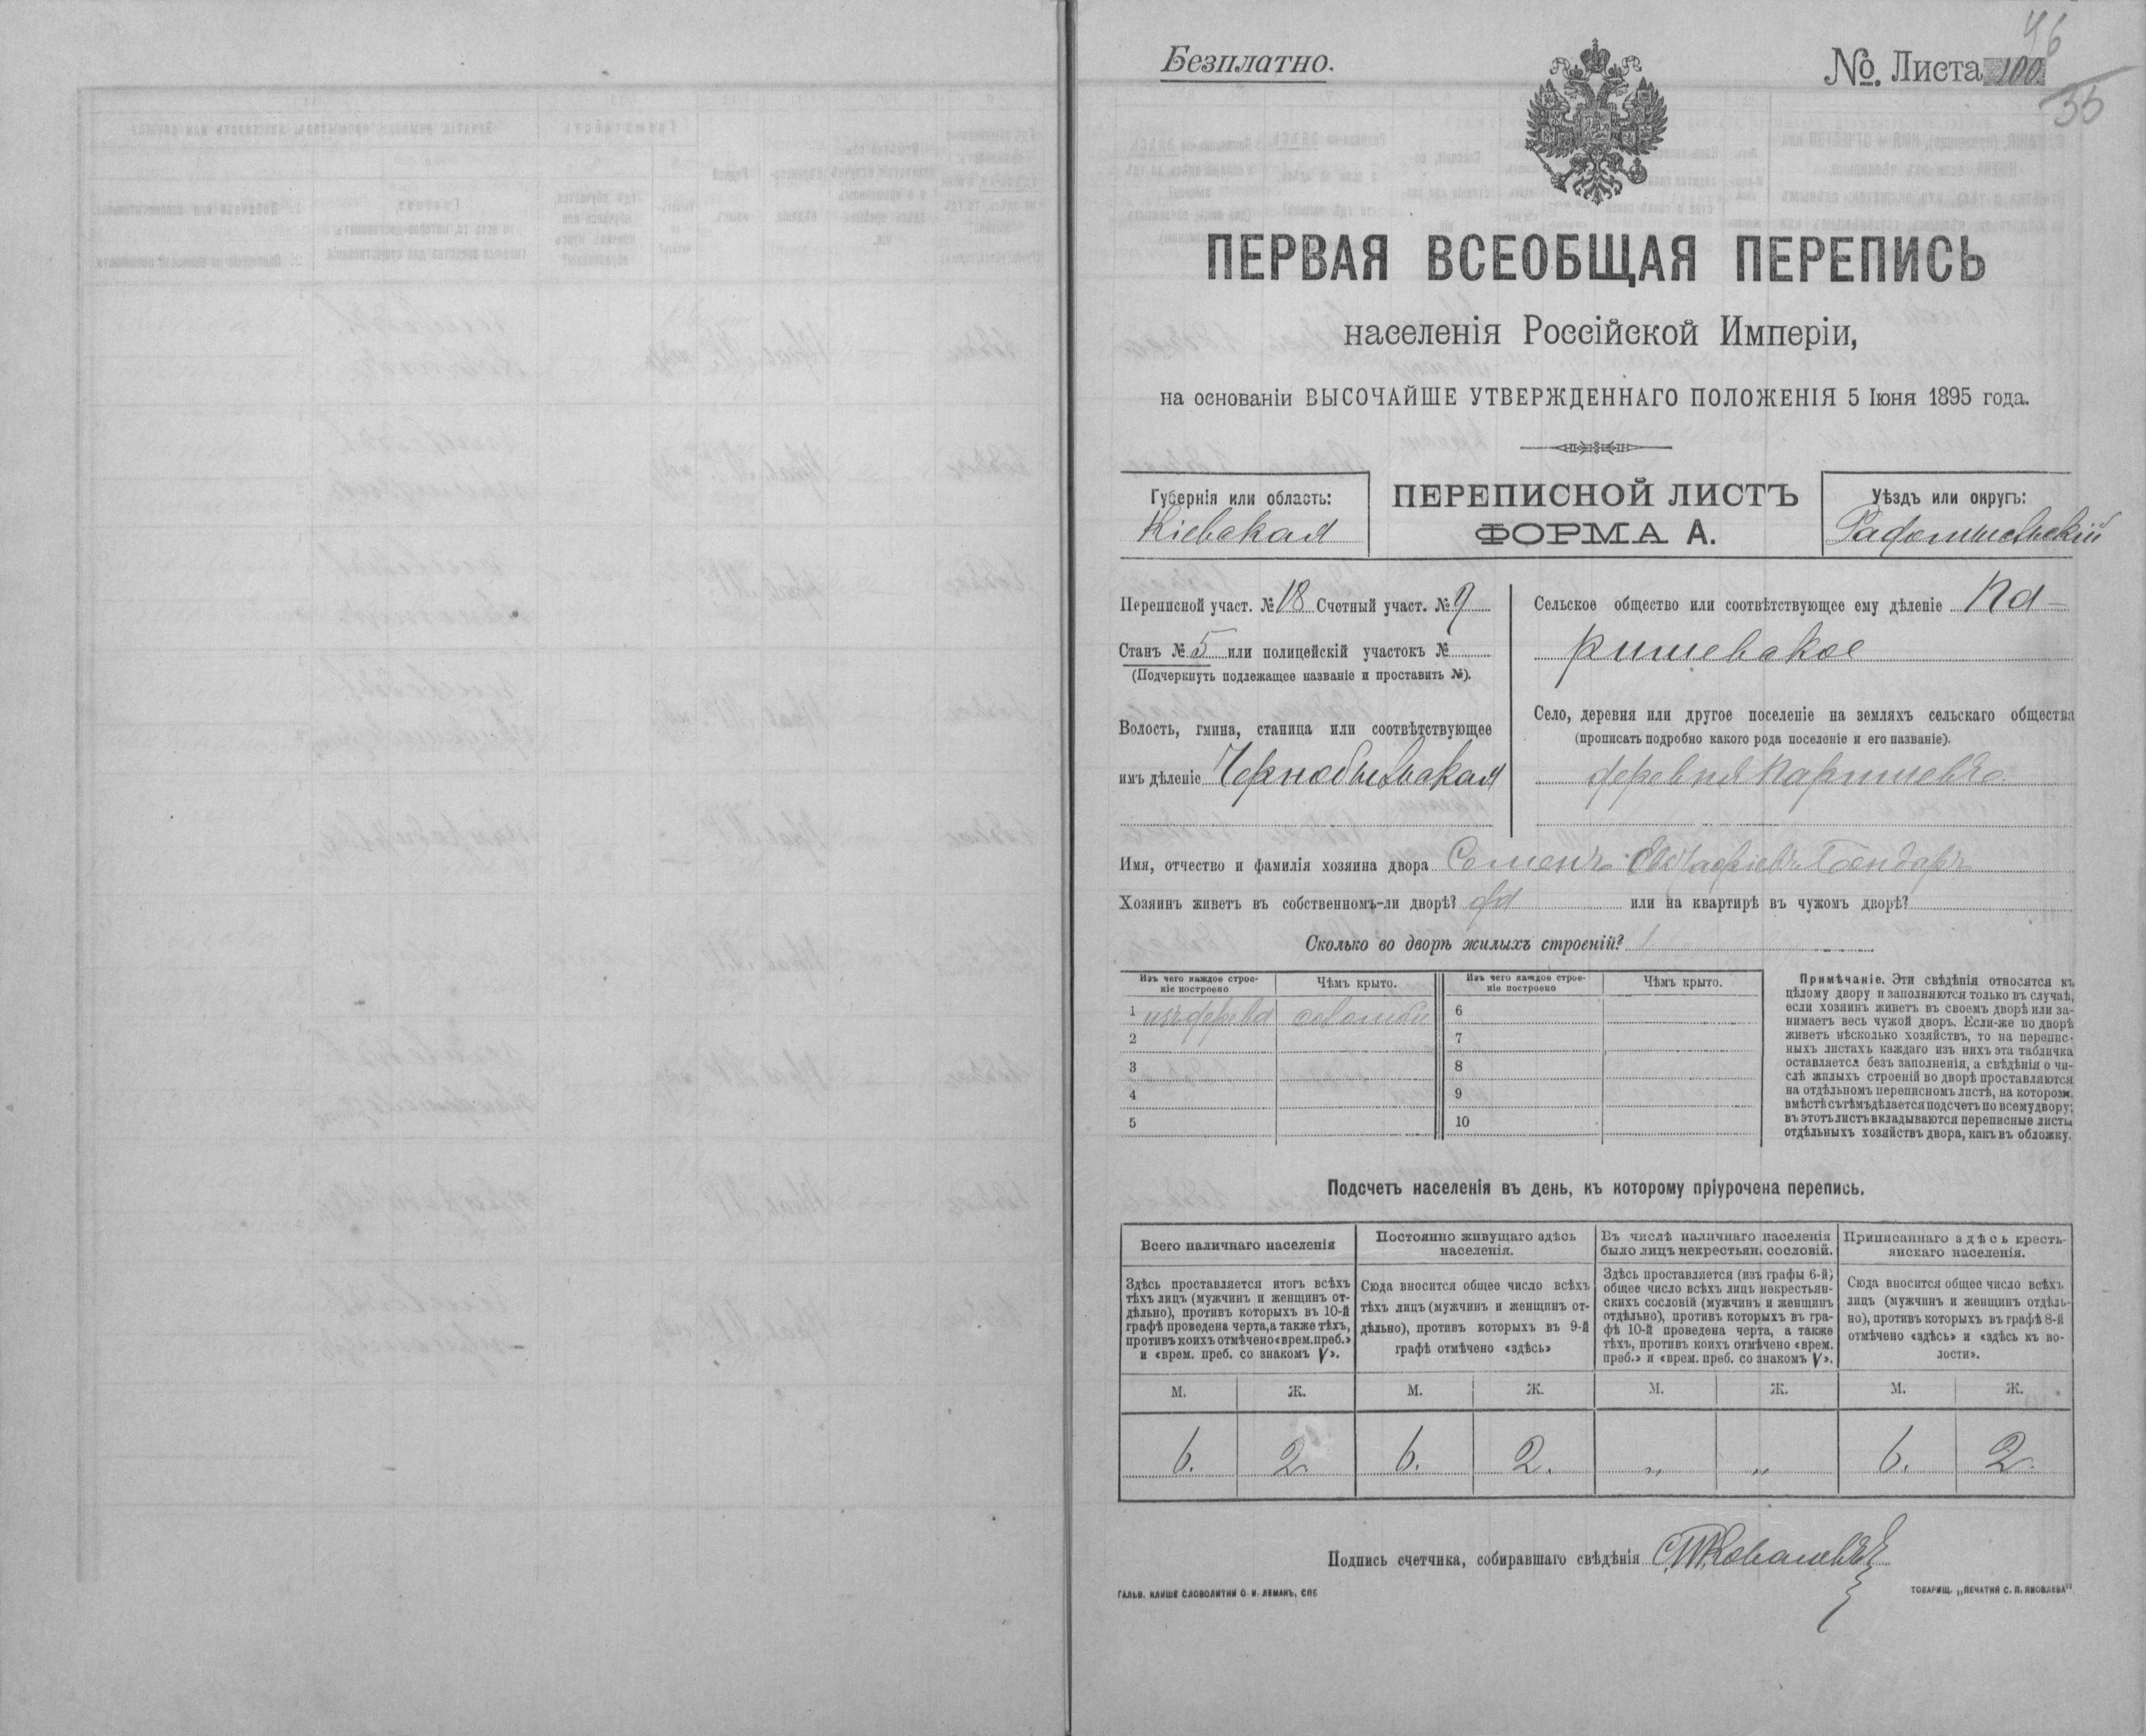 Безплатно.
№. Листа 100
96
35
ПЕРВАЯ ВСЕОБЩАЯ ПЕРЕПИСЬ
населенія Россійской Имперіи,
на основаніи ВЫСОЧАЙШЕ УТВЕРЖДЕННАГО ПОЛОЖЕНІЯ 5 Іюня 1895 года.
Губернія или область:
Кіевская
ПЕРЕПИСНОЙ ЛИСТЪ
ФОРМА А.
Уѣздъ или округъ:
Радомысльскій
Переписной участ. № 18 Счетный участ. № 9
Станъ № 5 или полицейскій участокъ №
(Подчеркнуть подлежащее названіе и проставить №).
Волость, гмина, станица или соотвѣтствующее
имъ дѣленіе Чернобыльская
Сельское общество или соотвѣтствующее ему дѣленіе Па-
ришевское
Село, деревня или другое поселеніе на земляхъ сельскаго общества
(прописать подробно какого рода поселеніе и его названіе).
деревня Паришевка
Имя, отчество и фамилія хозяина двора Семенъ Бондарь
Хозяинъ живетъ въ собственномъ-ли дворѣ? да или на квартирѣ въ чужомъ дворѣ?
Сколько во дворѣ жилыхъ строеній? 1
Изъ чего каждое строе-
ніе построено
Чѣмъ крыто.
Изъ чего каждое строе-
ніе построено
Чѣмъ крыто.
1 изъ дерева соломой 6
2 7
3 8
4 9
5 10
Примѣчаніе. Эти свѣдѣнія относятся къ
цѣлому двору и заполняются только въ случаѣ,
если хозяинъ живетъ въ своемъ дворѣ или за-
нимаетъ весь чужой дворъ. Если-же во дворѣ
живетъ нѣсколько хозяйствъ, то на перепис-
ныхъ листахъ каждаго изъ нихъ эта табличка
оставляется безъ заполненія, а свѣдѣнія о чи-
слѣ жилыхъ строеній во дворѣ проставляются
на отдѣльномъ переписномъ листѣ, на которомъ
вмѣстѣ съ тѣмъ дѣлается подсчетъ по всему двору;
въ этотъ листъ вкладываются переписные листы
отдѣльныхъ хозяйствъ двора, какъ въ обложку.
Подсчетъ населенія въ день, къ которому пріурочена перепись.
Всего наличнаго населенія
Здѣсь проставляется итогъ всѣхъ
тѣхъ лицъ (мужчинъ и женщинъ от-
дѣльно), противъ которыхъ въ 10-й
графѣ проведена черта, а также тѣхъ,
противъ коихъ отмѣчено «врем. преб.»
и «врем. преб. со знакомъ V».
Постоянно живущаго здѣсь
населенія.
Сюда вносится общее число всѣхъ
тѣхъ лицъ (мужчинъ и женщинъ от-
дѣльно), противъ которыхъ въ 9-й
графѣ отмѣчено «здѣсь»
Въ числѣ наличнаго населенія
было лицъ некрестьян. сословій.
Здѣсь проставляется (изъ графы 6-й)
общее число всѣхъ лицъ некрестьян-
скихъ сословій (мужчинъ и женщинъ
отдѣльно), противъ которыхъ въ гра-
фѣ 10-й проведена черта, а также
тѣхъ, противъ коихъ отмѣчено «врем.
преб.» и «врем. преб. со знакомъ V».
Приписаннаго здѣсь кресть-
янскаго населенія.
Сюда вносится общее число всѣхъ
лицъ (мужчинъ и женщинъ отдѣль-
но), противъ которыхъ въ графѣ 8-й
отмѣчено «здѣсь» и «здѣсь къ во-
лости».
М. Ж. М. Ж. М. Ж. М. Ж.
6. 2. 6. 2. „ „ 6. 2.
Подпись счетчика, собиравшаго свѣдѣнія
ГАЛЬВ. КЛИШЕ СЛОВОЛИТНИ О. И. ЛЕМАНЪ, СПБ
ТОВАРИЩ. „ПЕЧАТНЯ С. П. ЯКОВЛЕВА"